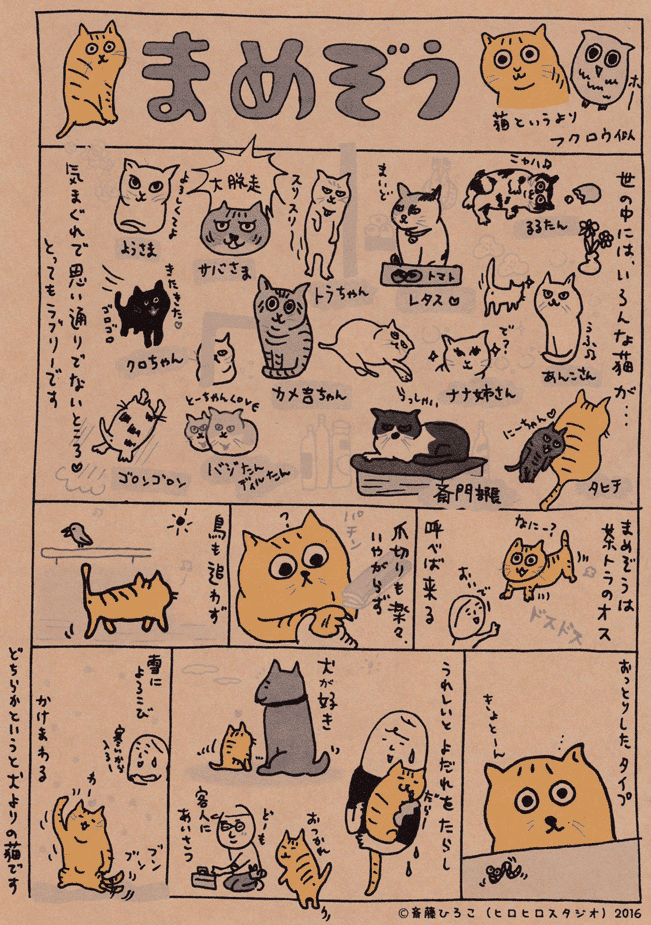 まめぞう
猫というより
フクロウ似
ホー
世の中には、いろんな猫が…
ミャハハ
るるたん
まいど
トマト
レタス
スリスリ〜
トラちゃん
大脱走
サバさま
よろしくてよ
ようさま
うふふ
あんこさん
で?
ナナ姉さん
カメ吉ちゃん
きたきた
ゴロゴロ
クロちゃん
にーちゃん
タヒチ
らっしゃい
斎門部長
とーちゃんLOVE
バジたん
ディルたん
ゴロンゴロン
気まぐれで思い通りでないところ
とってもラブリーです
まめぞうは
茶トラのオス
なにー?
ドスドス
おいでー
呼べば来る
爪切りも楽々、
いやがらず
パチン
?
鳥も追わず
おっとりしたタイプ
きょとーん
うれしいとよだれもたらし
だらー
犬が好き
客人に
あいさつ
どーも
おつかれ
雪に
よろこび
かけまわる
寒いから
カー
ブンブン
どちらかというと犬よりの猫です
©斎藤ひろこ(ヒロヒロスタジオ)2016